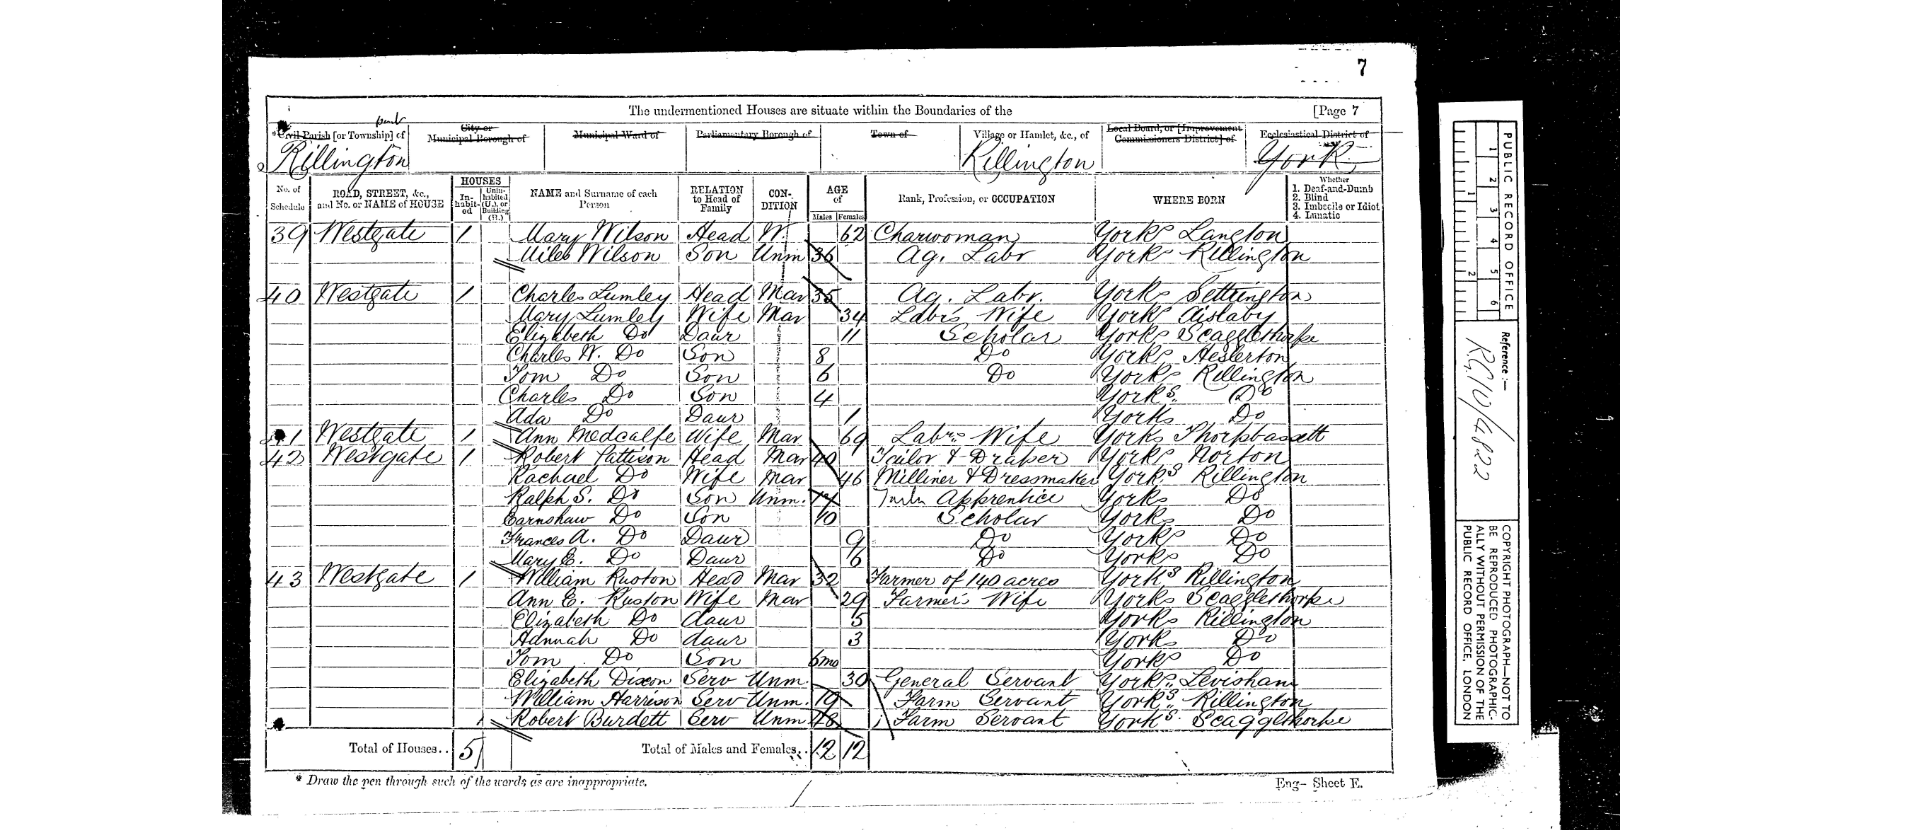 7
The undermentioned Houses are situate within the Boundaries of the [Page 7
*Civil Parish [or Township] of City or Municipal Borough of Municipal Ward of Parliamentary Borough of Town of Village or Hamlet, &c., of Local Board, or [Improvement Commissioners District] of Ecclesiastical District of
Rillington Rillington York
No. of Schedule ROAD, STREET, &c., and No. or NAME of HOUSE HOUSES Inhabited Uninhabited (U.), or Building (B.) NAME and Surname of each Person RELATION to Head of Family CONDITION AGE of Males Females Rank, Profession, or OCCUPATION WHERE BORN Whether 1. Deaf-and-Dumb 2. Blind 3. Imbecile or Idiot 4. Lunatic
39 Westgate 1 Mary Wilson Head W. 62 Charwoman Yorks Langton
Miles Wilson Son Unm 36 Ag. Labr Yorks Rillington
40 Westgate 1 Charles Lumley Head Mar 35 Ag. Labr. Yorks Settrington
Mary Lumley Wife Mar 34 Labrs Wife Yorks Aislaby
Elizabeth Do Daur 11 Scholar Yorks Scagglethorpe
Charles W. Do Son 8 Do Yorks Heslerton
Tom Do Son 6 Do Yorks Rillington
Charles Do Son 4 Yorks. Do
Ada Do Daur 1 Yorks Do
41 Westgate 1 Ann Medcalfe Wife Mar 69 Labrs Wife Yorks Thorpbassett
42 Westgate 1 Robert Pattison Head Mar 40 Tailor & Draper Yorks Norton
Rachael Do Wife Mar 46 Milliner & Dressmaker Yorks Rillington
Ralph S. Do Son Unm. 14 Apprentice Yorks Do
Earnshaw Do Son 10 Scholar Yorks Do
Frances A. Do Daur 9 Do Yorks Do
Mary E. Do Daur 6 Do Yorks Do
43 Westgate 1 William Ruston Head Mar 32 Farmer of 140 acres Yorks Rillington
Ann E. Ruston Wife Mar 29 Farmers Wife Yorks Scagglethorpe
Elizabeth Do daur 5 Yorks Rillington
Hannah Do daur 3 Yorks Do
Tom Do Son 6mo Yorks Do
Elizabeth Dixon Serv Unm. 30 General Servant Yorks. Levisham
William Harrison Serv Unm. 19 Farm Servant Yorks. Rillington
Robert Burdett Serv Unm 48 Farm Servant Yorks. Scagglethorpe
Total of Houses.. 5 Total of Males and Females.. 12 12
* Draw the pen through such of the words as are inappropriate. Eng- Sheet E.
PUBLIC RECORD OFFICE
1 2 3 4 5 6
1 2
Reference :—
RG 10/4822
COPYRIGHT PHOTOGRAPH—NOT TO
BE REPRODUCED PHOTOGRAPHIC-
ALLY WITHOUT PERMISSION OF THE
PUBLIC RECORD OFFICE, LONDON